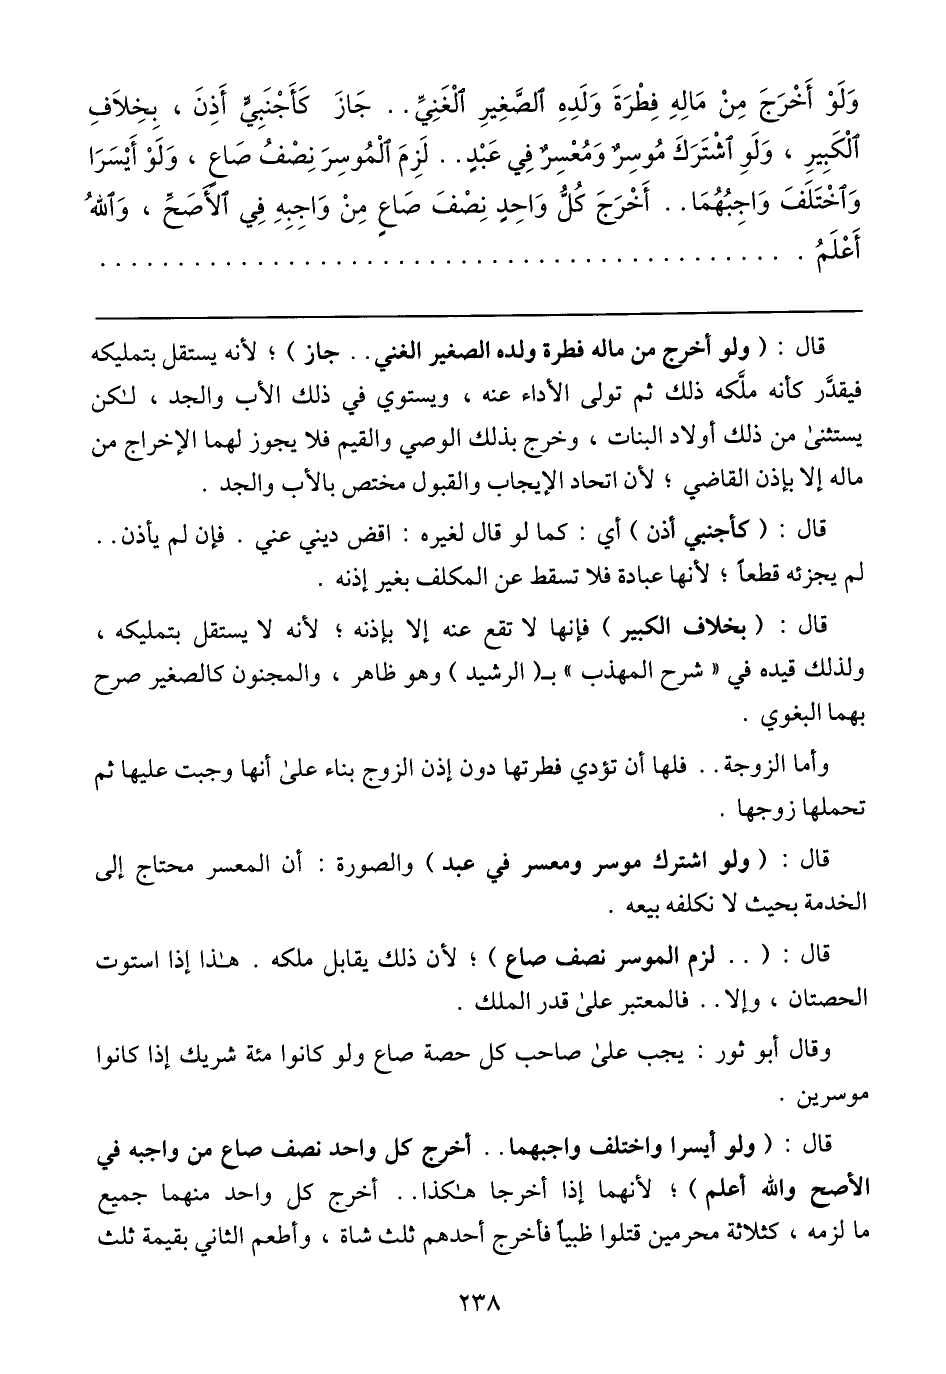 وَلَوْ أَخْرَجَ مِنْ مَالِهِ فِطْرَةَ وَلَدِهِ ٱلصَّغِيرِ ٱلْغَنِيِّ.. جَازَ كَأَجْنَبِيٍّ أَذِنَ ، بِخِلاَفِ
ٱلْكَبِيرِ ، وَلَوِ ٱشْتَرَكَ مُوسِرٌ وَمُعْسِرٌ فِي عَبْدٍ.. لَزِمَ ٱلْمُوسِرَ نِصْفُ صَاعٍ ، وَلَوْ أَيْسَرَا
وَٱخْتَلَفَ وَاجِبُهُمَا.. أَخْرَجَ كُلُّ وَاحِدٍ نِصْفَ صَاعٍ مِنْ وَاجِبِهِ فِي ٱلأَصَحِّ ، وَٱللهُ
أَعْلَمُ . . . . . . . . . . . . . . . . . . . . . . . . . . . . . . . . . . . . . . . . . . .
قال : ( ولو أخرج من ماله فطرة ولده الصغير الغني.. جاز ) ؛ لأنه يستقل بتمليكه
فيقدَّر كأنه ملَّكه ذلك ثم تولى الأداء عنه ، ويستوي في ذلك الأب والجد ، لـٰكن
يستثنىٰ من ذلك أولاد البنات ، وخرج بذلك الوصي والقيم فلا يجوز لهما الإخراج من
ماله إلا بإذن القاضي ؛ لأن اتحاد الإيجاب والقبول مختص بالأب والجد .
قال : ( كأجنبي أذن ) أي : كما لو قال لغيره : اقض ديني عني . فإن لم يأذن..
لم يجزئه قطعاً ؛ لأنها عبادة فلا تسقط عن المكلف بغير إذنه .
قال : ( بخلاف الكبير ) فإنها لا تقع عنه إلا بإذنه ؛ لأنه لا يستقل بتمليكه ،
ولذلك قيده في « شرح المهذب » بـ( الرشيد ) وهو ظاهر ، والمجنون كالصغير صرح
بهما البغوي .
وأما الزوجة.. فلها أن تؤدي فطرتها دون إذن الزوج بناء علىٰ أنها وجبت عليها ثم
تحملها زوجها .
قال : ( ولو اشترك موسر ومعسر في عبد ) والصورة : أن المعسر محتاج إلى
الخدمة بحيث لا نكلفه بيعه .
قال : ( .. لزم الموسر نصف صاع ) ؛ لأن ذلك يقابل ملكه . هـٰذا إذا استوت
الحصتان ، وإلا.. فالمعتبر علىٰ قدر الملك .
وقال أبو ثور : يجب علىٰ صاحب كل حصة صاع ولو كانوا مئة شريك إذا كانوا
موسرين .
قال : ( ولو أيسرا واختلف واجبهما.. أخرج كل واحد نصف صاع من واجبه في
الأصح والله أعلم ) ؛ لأنهما إذا أخرجا هـٰكذا.. أخرج كل واحد منهما جميع
ما لزمه ، كثلاثة محرمين قتلوا ظبياً فأخرج أحدهم ثلث شاة ، وأطعم الثاني بقيمة ثلث
٢٣٨